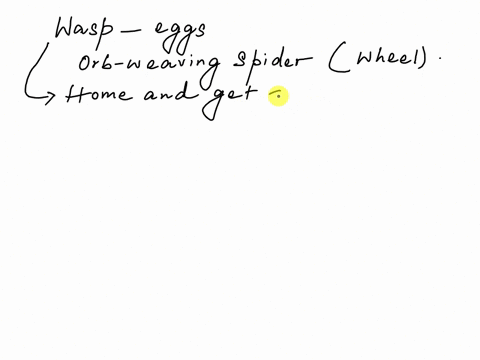 Wasp - eggs
Orb-weaving spider (wheel).
Home and get